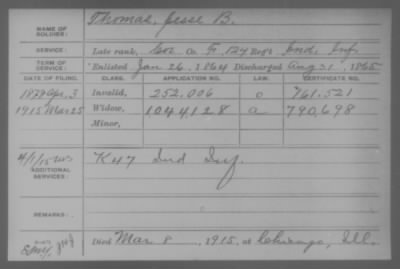 NAME OF SOLDIER: Thomas, Jesse B.
SERVICE: Late rank, Cor Co. F, 124 Reg't Ind. Inf.
TERM OF SERVICE: Enlisted Jan 26, 1864 Discharged Aug 31, 1865
DATE OF FILING. CLASS. APPLICATION NO. LAW. CERTIFICATE NO.
1879 Apr. 3 Invalid, 252.006 o 761.521
1915 Mar 25 Widow, 1044128 a 790,698
Minor,
4/1/15
ADDITIONAL SERVICES: K 47 Ind Inf.
REMARKS:
Died Mar 8, 1915, at Chicago, Ill.